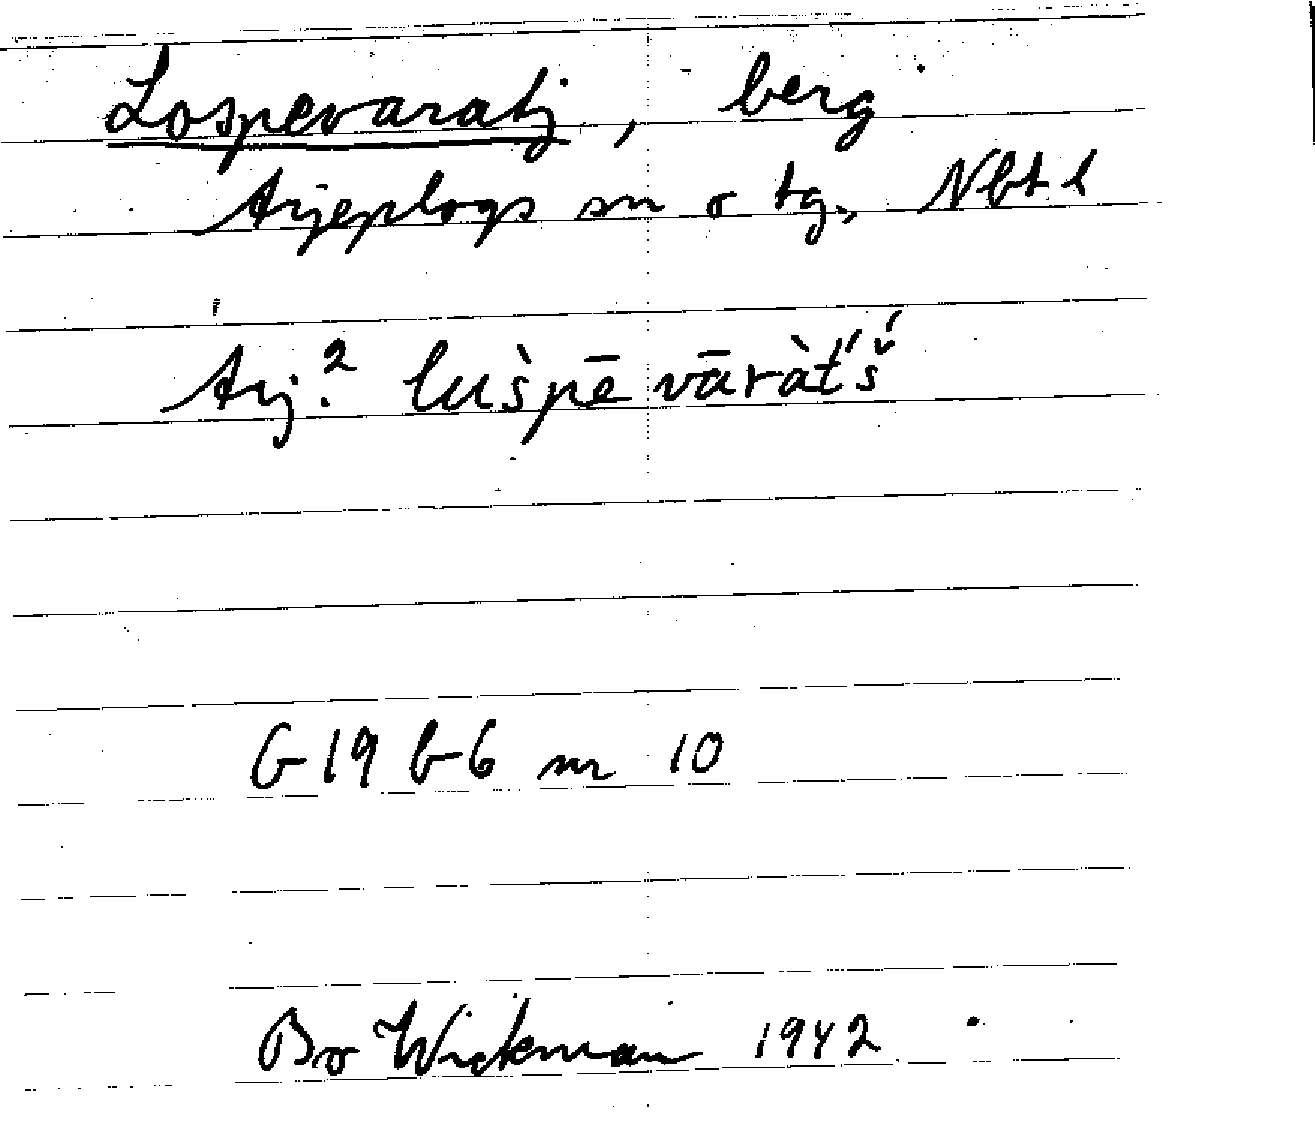 Lospevaratj, berg
Arjeplogs sn o tg., Nbt l
Arj.² lus̀pē vāràt́š́
G 19 b 6 nr 10
Bo Wickman 1942